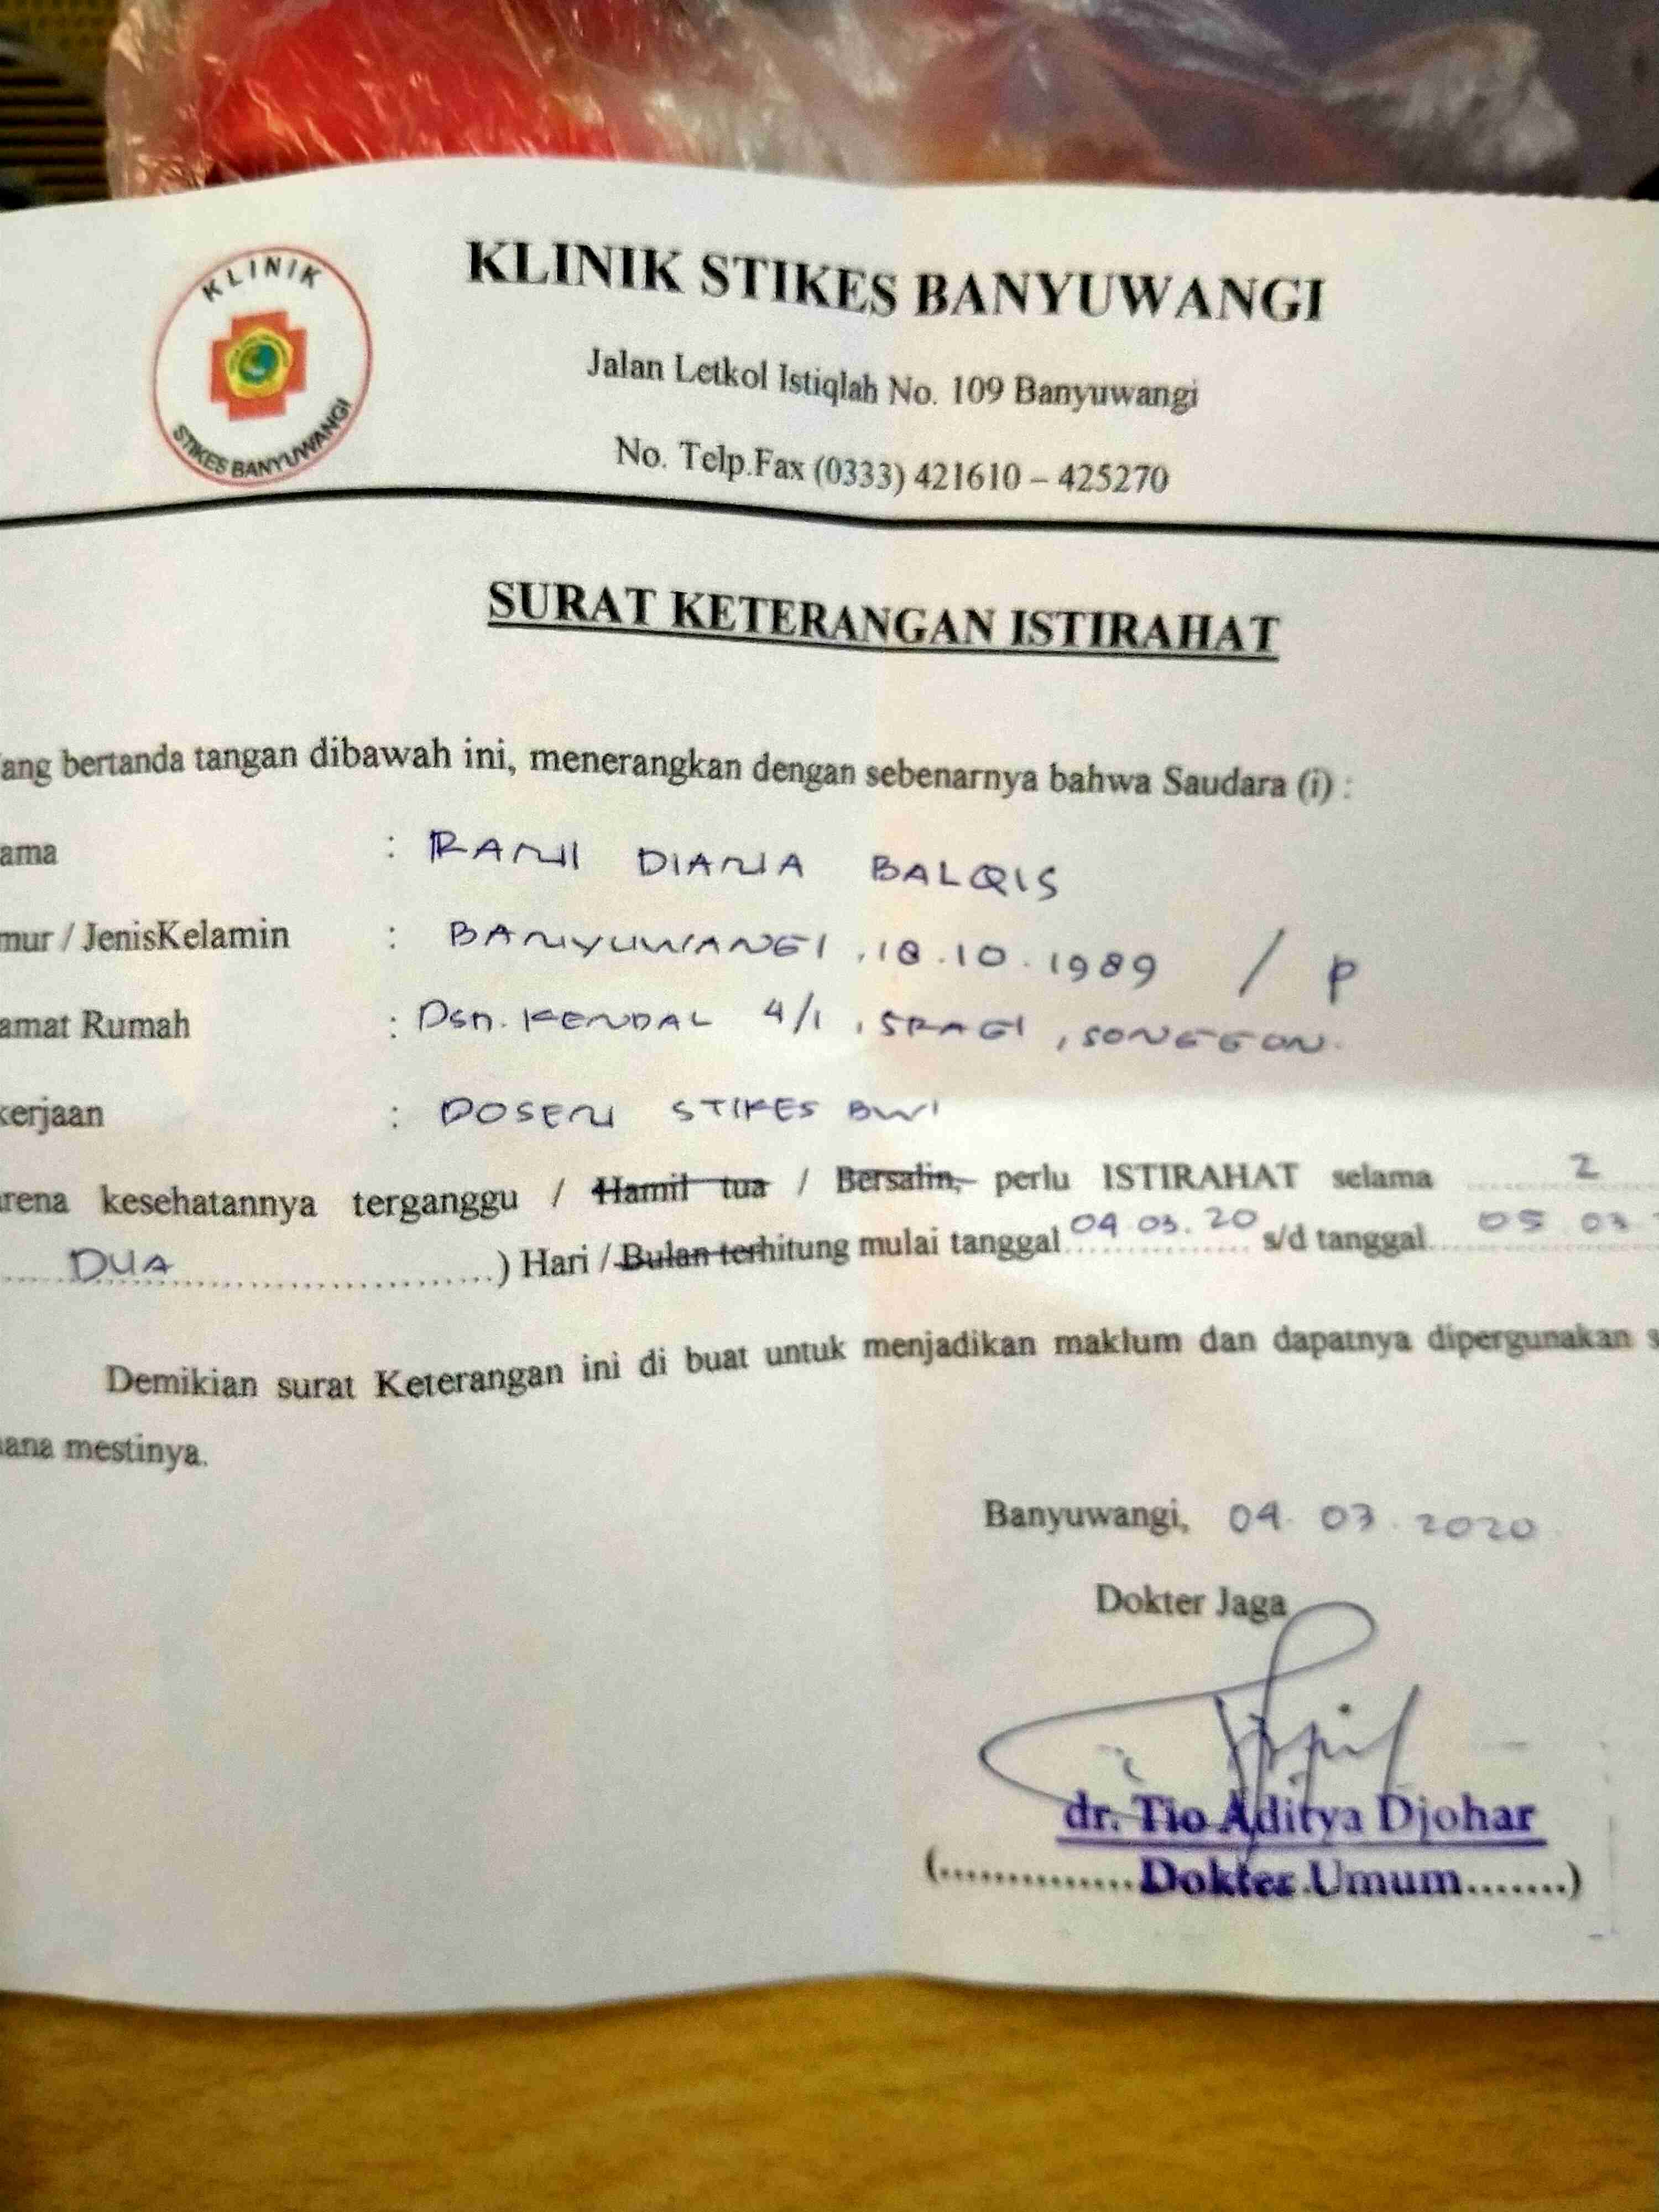 KLINIK
STIKES BANYUWANGI
KLINIK STIKES BANYUWANGI
Jalan Letkol Istiqlah No. 109 Banyuwangi
No. Telp.Fax (0333) 421610 – 425270
SURAT KETERANGAN ISTIRAHAT
ang bertanda tangan dibawah ini, menerangkan dengan sebenarnya bahwa Saudara (i) :
ama : RANI DIANA BALQIS
mur / JenisKelamin : BANYUWANGI, 18.10.1989 / P
amat Rumah : Dsn. KENDAL 4/1, SRAGI, SONGGON.
kerjaan : DOSEN STIKES BWI
rena kesehatannya terganggu / Hamil tua / Bersalin, perlu ISTIRAHAT selama 2
DUA ) Hari / Bulan terhitung mulai tanggal 04 03. 20 s/d tanggal 05 03
Demikian surat Keterangan ini di buat untuk menjadikan maklum dan dapatnya dipergunakan s
ana mestinya.
Banyuwangi, 04. 03. 2020
Dokter Jaga
dr. Tio Aditya Djohar
(...............Dokter Umum.......)